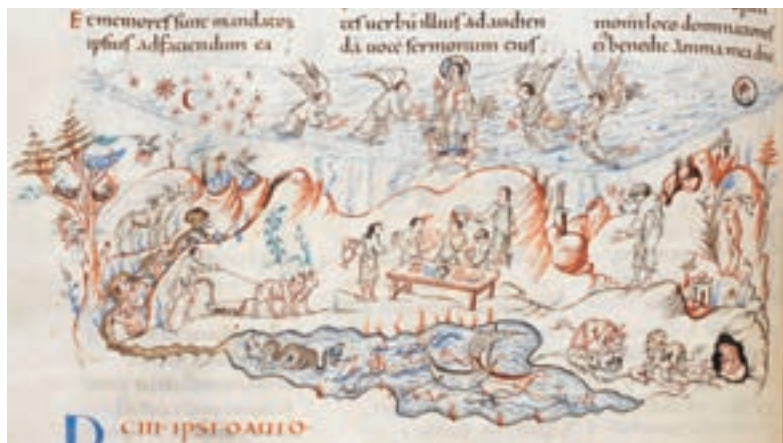 Et memores sunt mandatorū
ipsius ad faciendum ea
tes uerbū illius ad audien
dā uocē sermonum eius
omni loco dominationis
ei benedic anima mea dno
D CIII IPSI DAUID